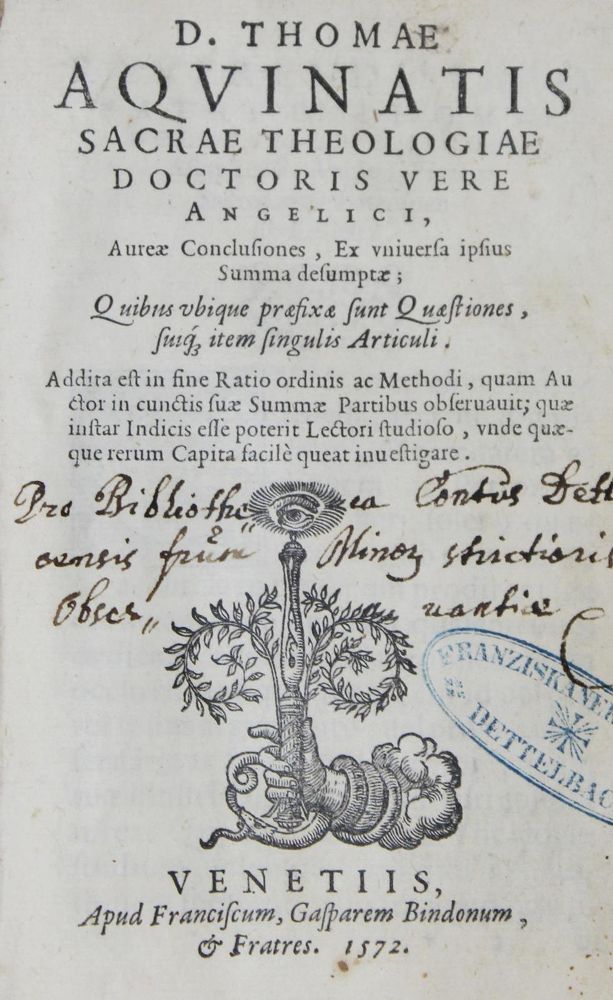 D. THOMAE
AQVINATIS
SACRAE THEOLOGIAE
DOCTORIS VERE
ANGELICI,
Aureæ Concluſiones, Ex vniuerſa ipſius
Summa deſumptæ;
Quibus vbique præfixæ ſunt Quæſtiones,
ſuiq́; item ſingulis Articuli.
Addita eſt in fine Ratio ordinis ac Methodi, quam Au
ctor in cunctis ſuæ Summæ Partibus obſeruauit; quæ
inſtar Indicis eſſe poterit Lectori ſtudioſo, vnde quæ-
que rerum Capita facilè queat inueſtigare.
Pro Bibliothe ca Contûs Dett
Minor strictioris
Obser„ vantiæ
FRANZISKANER
DETTELBAC
VENETIIS,
Apud Franciſcum, Gaſparem Bindonum,
& Fratres. 1572.